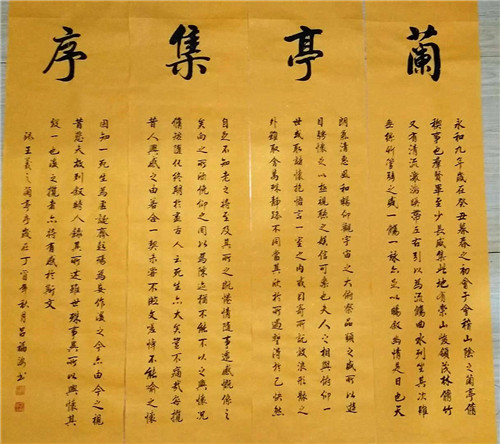 蘭亭集序
永和九年歲在癸丑暮春之初會于會稽山陰之蘭亭脩
禊事也群賢畢至少長咸集此地有崇山峻領茂林脩竹
又有清流激湍暎帶左右引以為流觴曲水列坐其次雖
無絲竹管弦之盛一觴一詠亦足以暢敘幽情是日也天
朗氣清惠風和暢仰觀宇宙之大俯察品類之盛所以遊
目騁懷足以極視聽之娛信可樂也夫人之相與俯仰一
世或取諸懷抱悟言一室之內或因寄所託放浪形骸之
外雖取舍萬殊靜躁不同當其欣於所遇暫得於己快然
自足不知老之將至及其所之既惓情隨事遷感慨係之
矣向之所欣俛仰之間以為陳迹猶不能不以之興懷況
脩短隨化終期於盡古人云死生亦大矣豈不痛哉每攬
昔人興感之由若合一契未嘗不臨文嗟悼不能喻之懷
固知一死生為虛誕齊彭殤為妄作後之今亦由今之視
昔悲夫故列敘時人錄其所述雖世殊事異所以興懷其
致一也後之攬者亦將有感於斯文
臨王羲之蘭亭序歲在丁酉年秋月呂福書